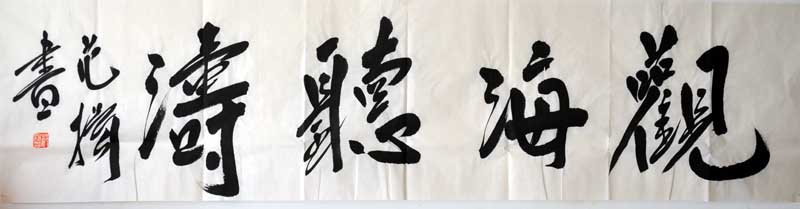 觀海聽濤
范
書